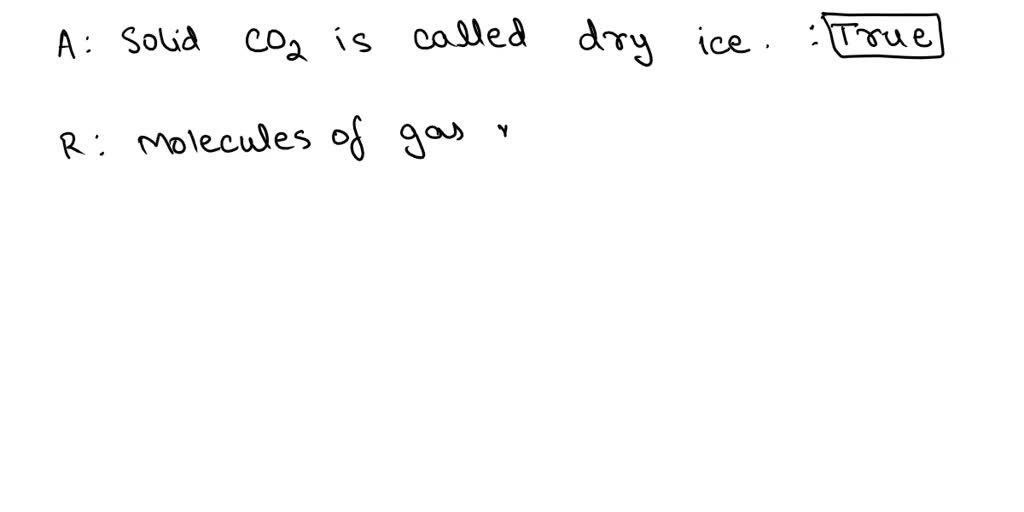 A: Solid CO2 is called dry ice. : True
R: Molecules of gas